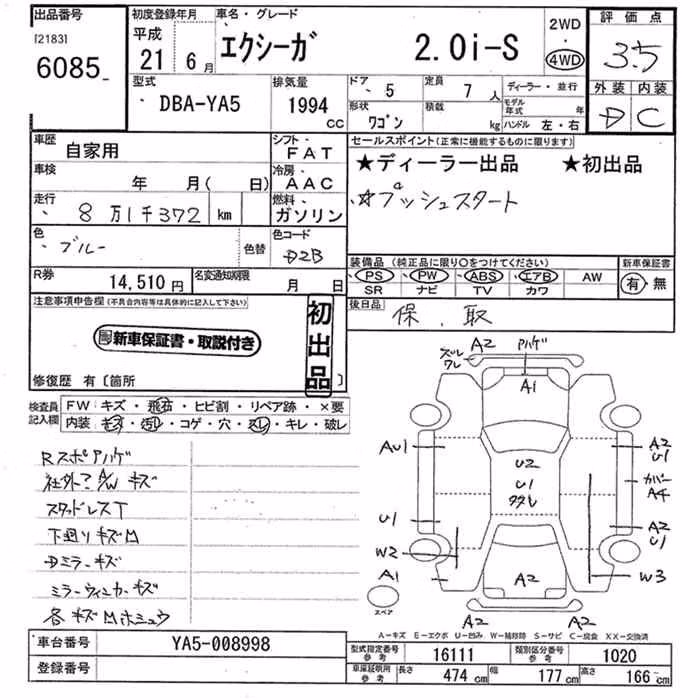 出品番号 初度登録年月 車名・グレード 評価点
[2183] 平成 エクシーガ 2.0i-S 2WD
6085 21年 6月 4WD 3.5
型式 排気量 ドア 5 定員 7人 ディーラー・並行 外装 内装
DBA-YA5 1994cc 形状 ワゴン 積載 kg モデル年式 年 D C
ハンドル 左・右
車歴 自家用 シフト FAT セールスポイント(正常に機能するものに限ります)
車検 年 月( 日) 冷房 AAC ★ディーラー出品 ★初出品
走行 8万1千372 km 燃料 ガソリン ☆プッシュスタート
色 ブルー 色替 色コード D2B
装備品(純正品に限り○をつけてください) 新車保証書
R券 14,510円 名変通知期限 月 日 PS PW ABS エアB AW 有・無
SR ナビ TV カワ
注意事項申告欄(不具合内容等は具体的に記入して下さい) 後日品 保.取
初出品
新車保証書・取説付き
修復歴 有〔箇所 〕
検査員記入欄 FW キズ・飛石・ヒビ割・リペア跡・×要
内装 キズ・汚レ・コゲ・穴・スレ・キレ・破レ
Rスポアハゲ
社外?A/Wキズ
スタッドレスT
下廻りキズM
Dミラーキズ
ミラーウィンカーキズ
各キズMホシュウ
ズレ ワレ A2 アハゲ
A1
AU1 U2 A2 U1
U1 カバー A4
U1 A2 U1
W2 W3
A1 A2
スペア A2 A2
A-キズ E-エクボ U-凹み W-補修跡 S-サビ C-腐食 XX-交換済
車台番号 YA5-008998 型式指定番号 参考 16111 類別区分番号 参考 1020
登録番号 車庫証明用 参考 長さ 474cm 幅 177cm 高さ 166cm